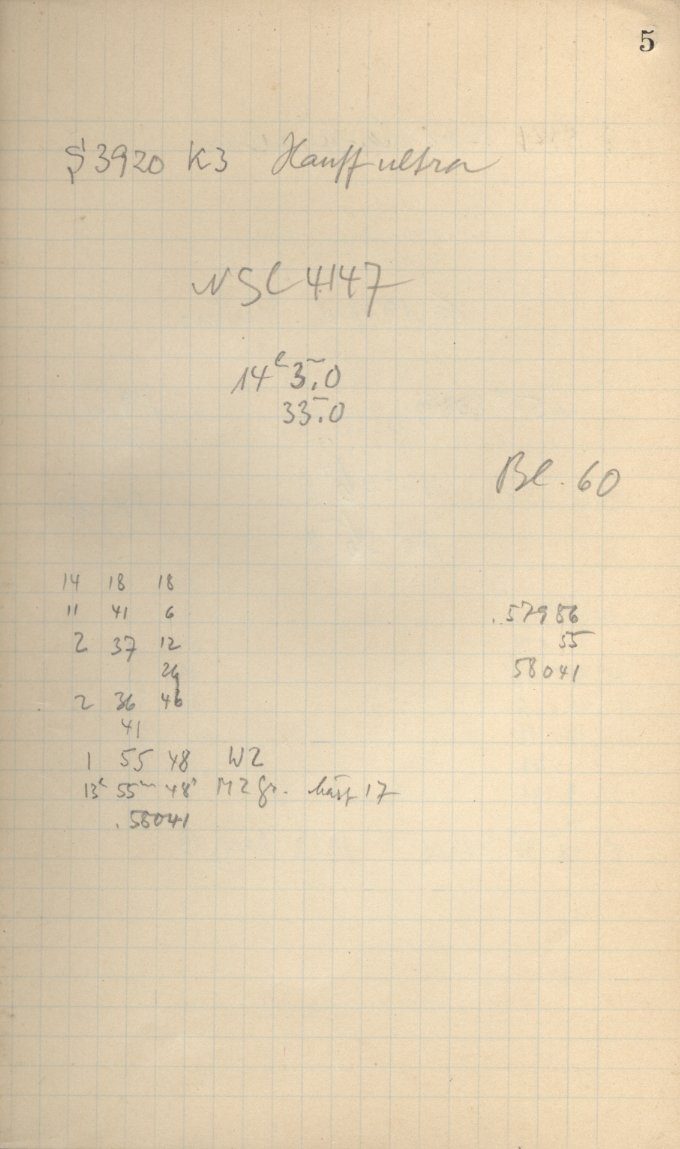 5
S 3920 K3 Hauff ultra
NGC 4147
14 3.0
33.0
Bl. 60
14 18 18
11 41 6
2 37 12
26
2 36 46
41
1 55 48 WZ
13h 55m 48s MZGr. März 17
.58041
.57986
55
58041